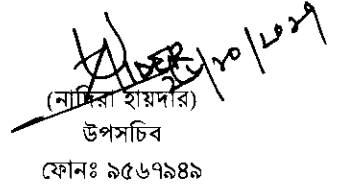 (নাদিরা হায়দার)
উপসচিব
ফোনঃ ৯৫৬৭৯৪৯